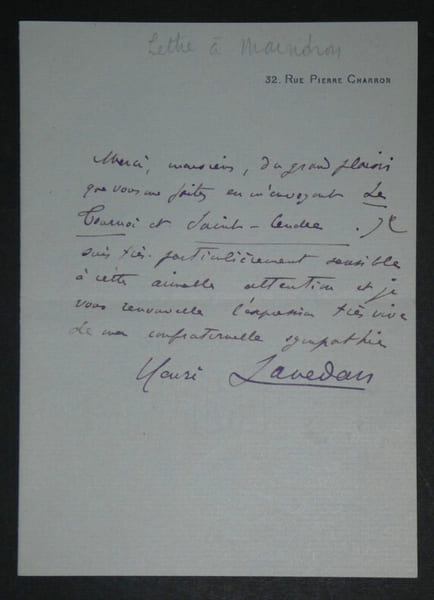 Lettre à Maindron
32, Rue Pierre Charron
Merci, monsieur, du grand plaisir
que vous me faites en m'envoyant Le
Tournoi et Saint-Cendre. Je
suis très particulièrement sensible
à cette aimable attention et je
vous renouvelle l'expression très vive
de ma confraternelle sympathie
Henri Lavedan